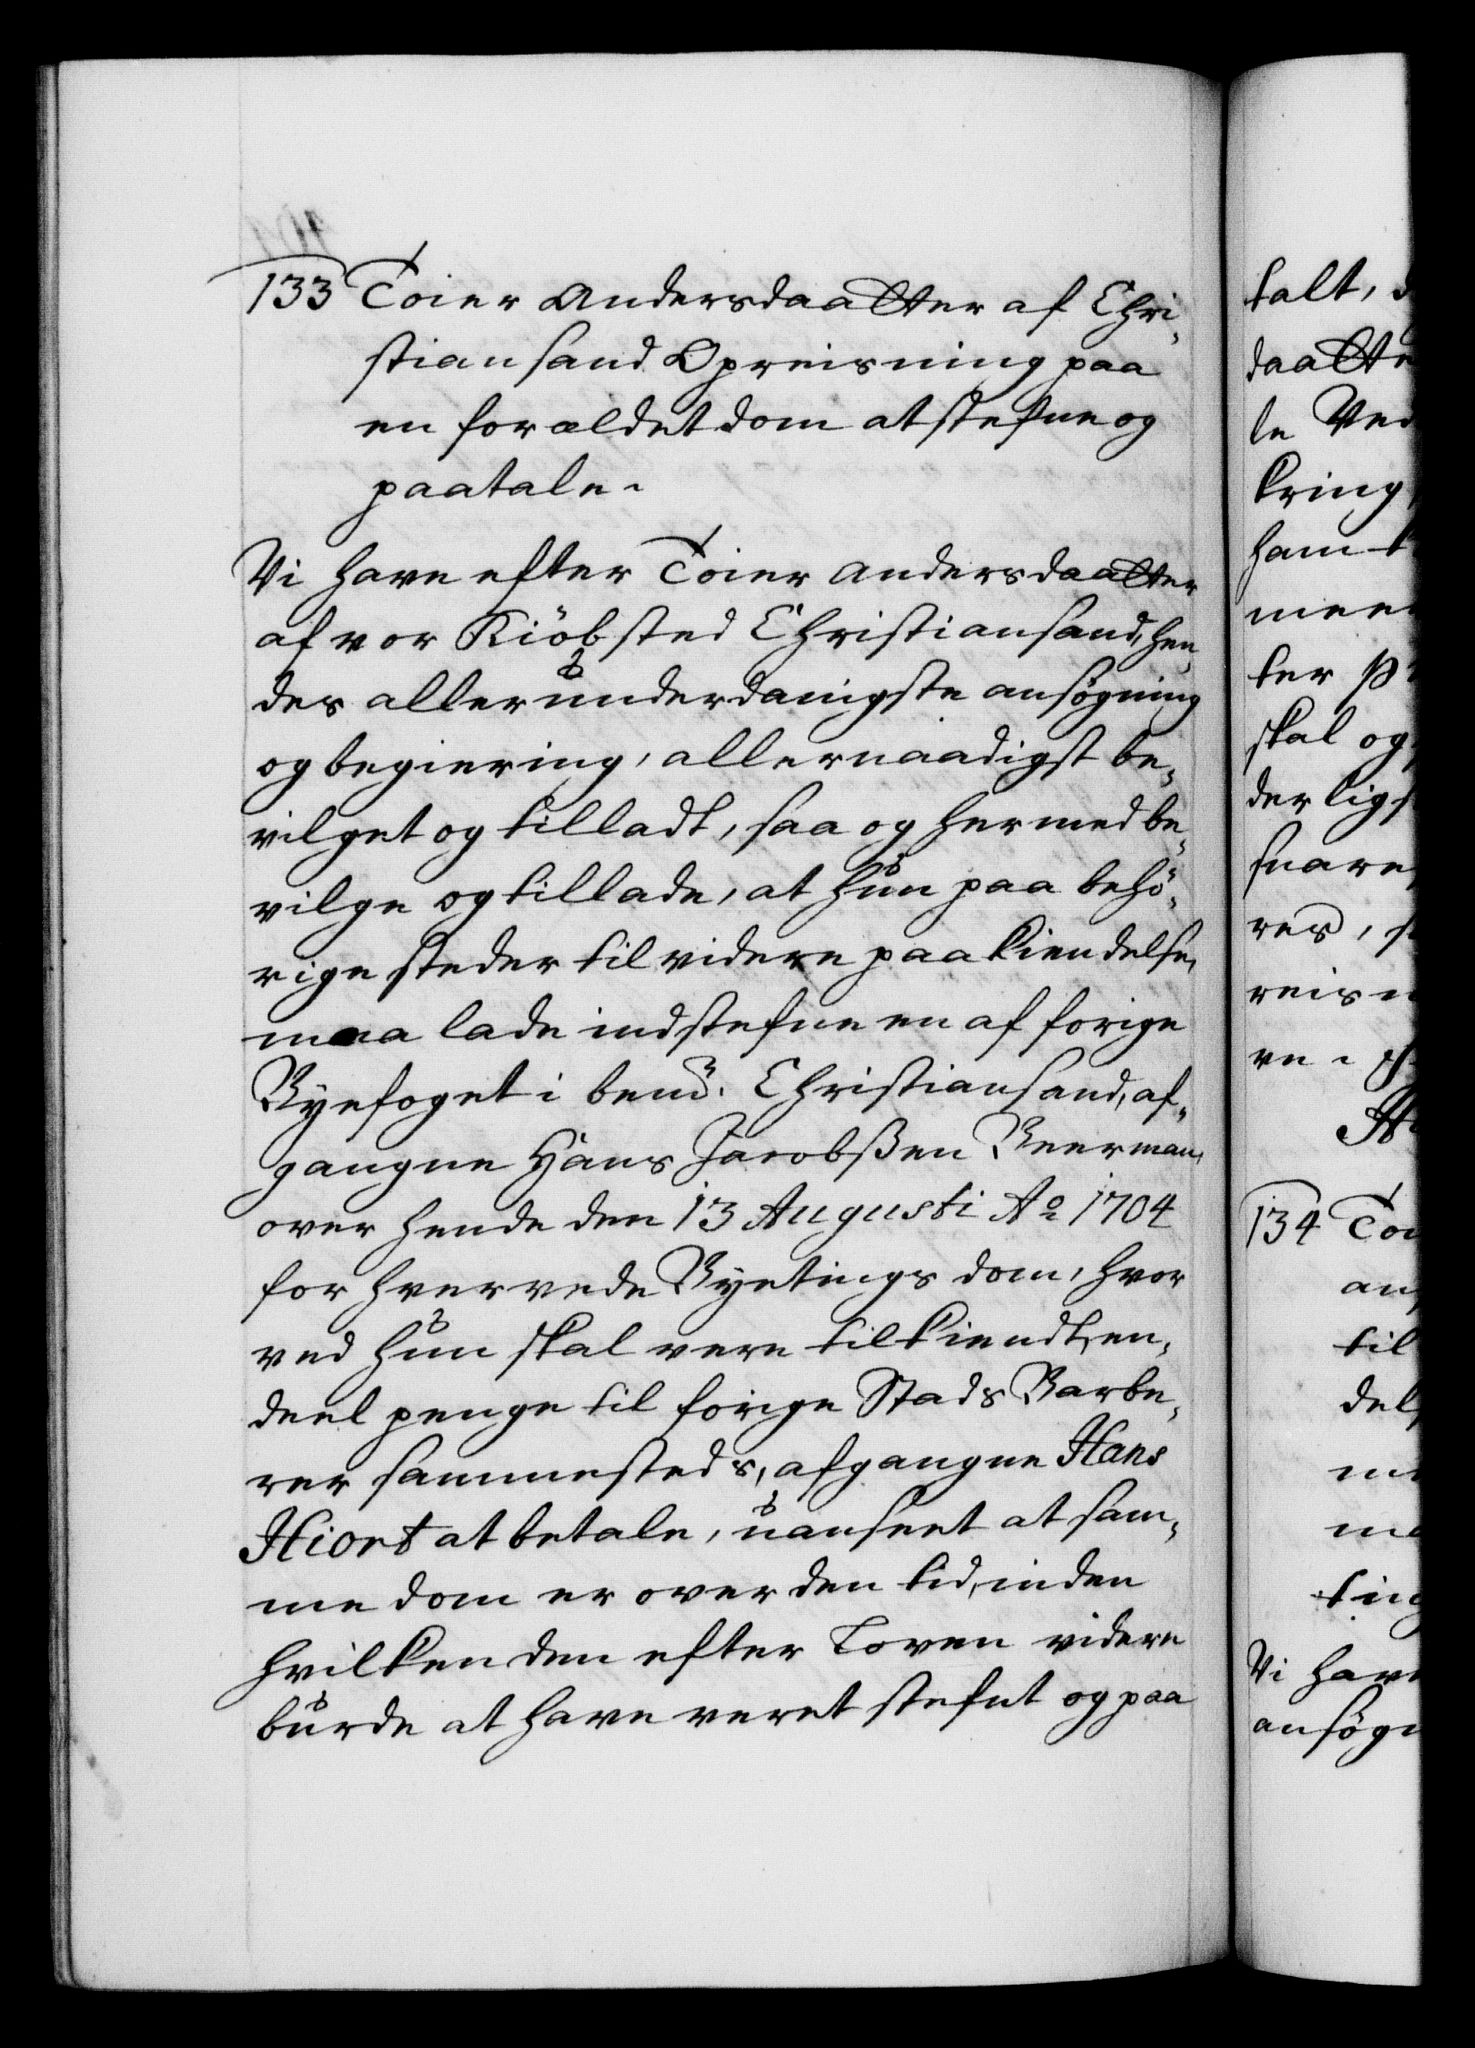 133 Toier Andersdaatter af Chri„
stiansand Opreisning paa
en forældet dom at stefne og
paatale.
Vi have efter Toier Andersdaatter
af vor Kiöbsted Christiansand, hen„
des allerunderdanigste ansögning
og begiering, allernaadigst be„
vilget og tilladt, saa og hermed be„
vilge og tillade, at hun paa behö„
rige steder til videre paakiendelse,
maa lade indstefne en af forige
Byefoget i bemd. Christiansand, af„
gangne Hans Jacobßen Beerman,
over hende den 13 Augusti Ao 1704
for hvervede Byetings dom, hvor
ved hun skal vere tilkiendt, en„
deel penge til forige Stads Barbe„
rer sammesteds, afgangne Hans
Hiort at betale, uanseet at sam„
me dom er over den tid, inden
hvilken den efter Loven videre
burde at have veret stefnt og paa
talt,
daatte
le Ved
kring
ham
meer
ter
skal og
derligs
svare
res,
reisn
re.
134 To
an
til
del
me
ma
ting
Vi have
ansögn